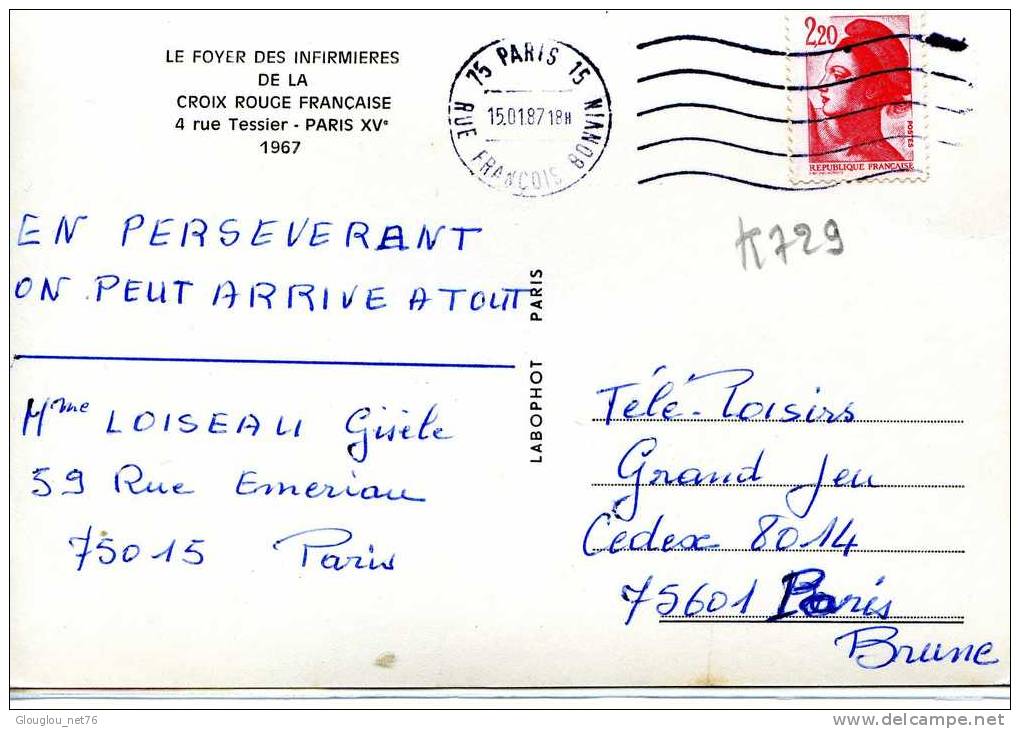 LE FOYER DES INFIRMIERES
DE LA
CROIX ROUGE FRANÇAISE
4 rue Tessier - PARIS XVe
1967
75 PARIS 15
15.01.87 18H
RUE FRANÇOIS BONVIN
2,20
POSTES
REPUBLIQUE FRANÇAISE
K729
EN PERSEVERANT
ON PEUT ARRIVE A TOUT
LABOPHOT PARIS
Mme LOISEAU Gisèle
59 Rue Emeriau
75015 Paris
Télé-Loisirs
Grand Jeu
Cedex 8014
75601 Paris
Brune
Glouglou_net76
delcampe.net